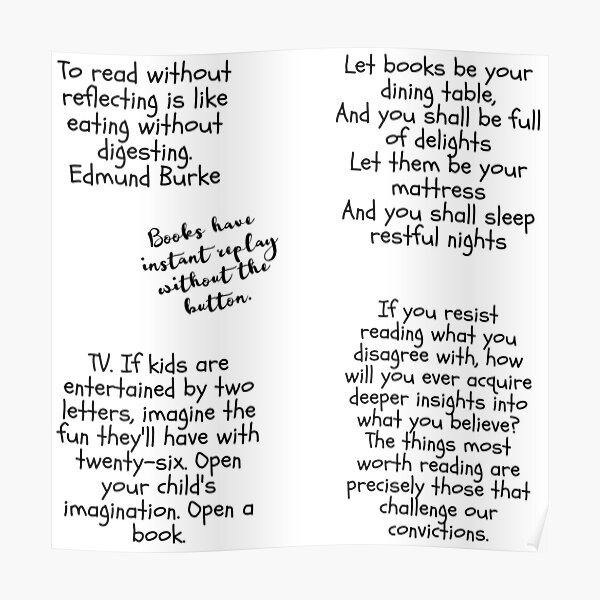 To read without
reflecting is like
eating without
digesting.
Edmund Burke
Books have
instant replay
without the
button.
TV. If kids are
entertained by two
letters, imagine the
fun they'll have with
twenty-six. Open
your child's
imagination. Open a
book.
Let books be your
dining table,
And you shall be full
of delights
Let them be your
mattress
And you shall sleep
restful nights
If you resist
reading what you
disagree with, how
will you ever acquire
deeper insights into
what you believe?
The things most
worth reading are
precisely those that
challenge our
convictions.